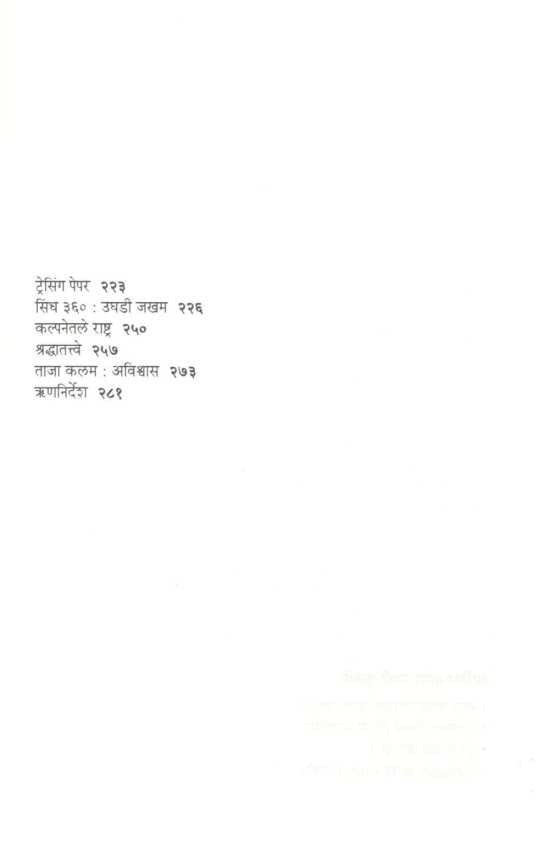 ट्रेसिंग पेपर २२३
सिंध ३६० : उघडी जखम २२६
कल्पनेतले राष्ट्र २५०
श्रद्धातत्त्वे २५७
ताजा कलम : अविश्वास २७३
ऋणनिर्देश २८१